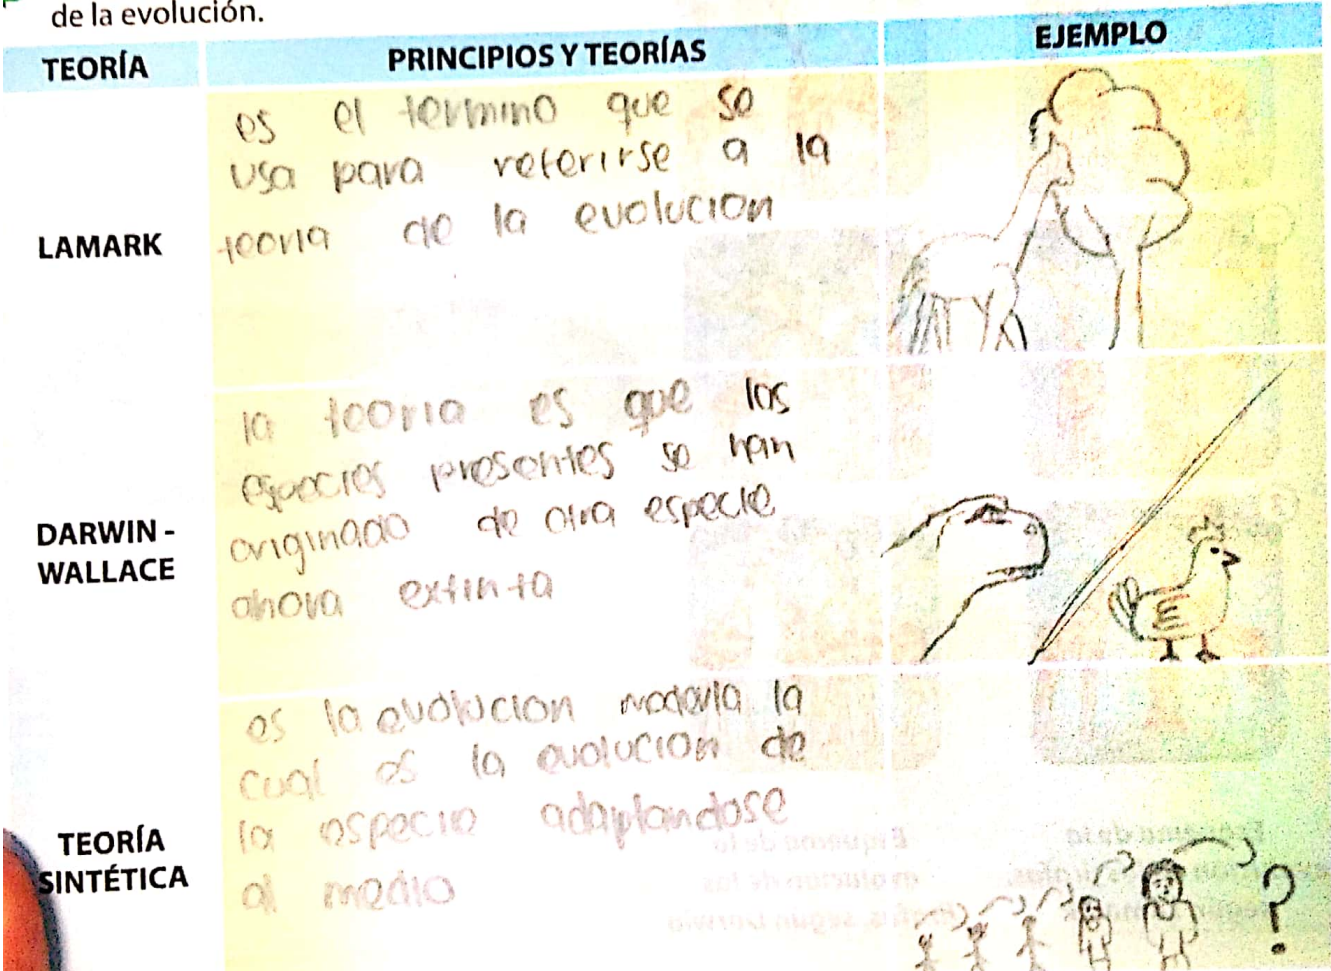 de la evolución.
TEORÍA
PRINCIPIOS Y TEORÍAS
EJEMPLO
LAMARK
es el termino que se
usa para referirse a la
teoria de la evolucion
DARWIN -
WALLACE
la teoria es que las
especies presentes se han
originado de otra especie
ahora extinta
TEORÍA
SINTÉTICA
es la evolucion la
cual es la evolucion de
la especie adaptandose
al medio
?